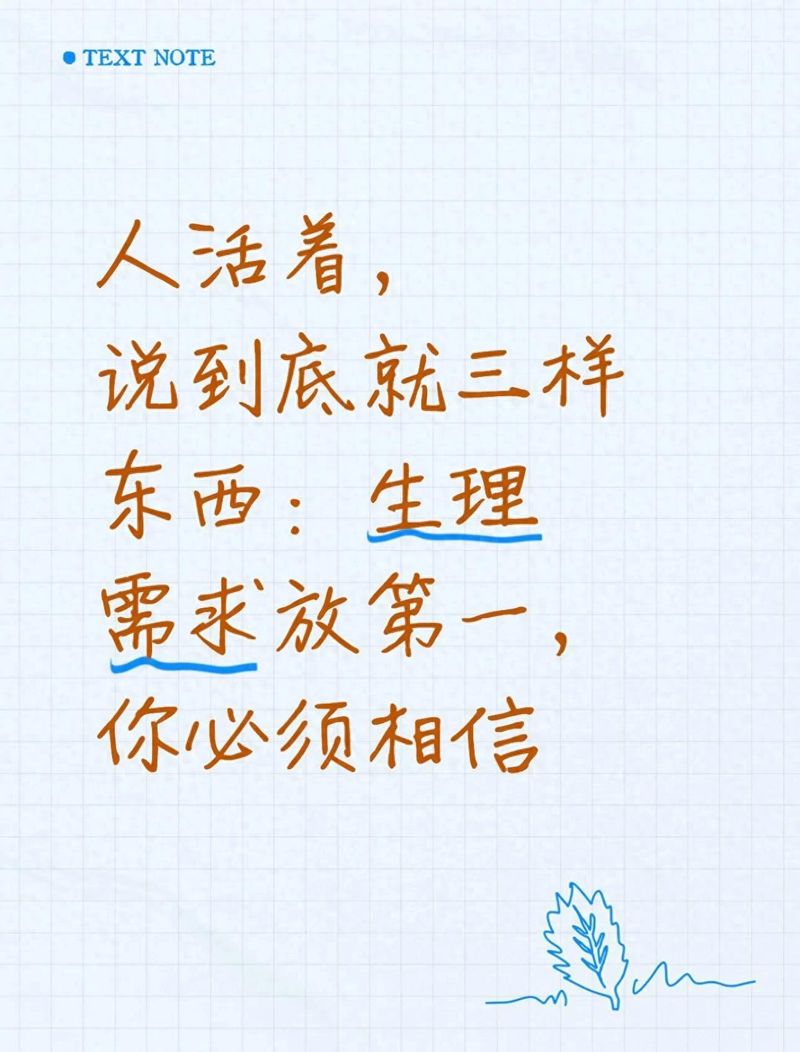 TEXT NOTE
人活着，
说到底就三样
东西：生理
需求放第一，
你必须相信